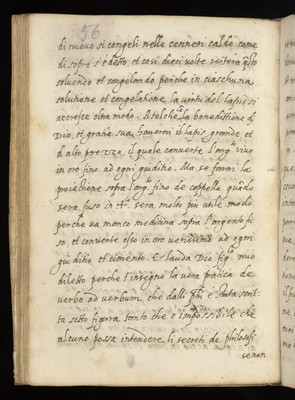 56
di nuouo si congeli nelle ceneri calde come
di sopra s'è detto, et cosi dieci uolte reitera q̃sto
soluendo et congelando perche in ciaschuna
solutione et congelatione, la uirtu del lapis si
accresce oltra modo. A talche la benedittione di
Dio, et gratia sua, haverai il lapis grande, et
d'alto prezzo, il quale conuerte l'arg.º uiuo
in oro fino ad ogni giuditio. Ma se farai la
proiettione sopra l'arg.º fino de coppella quãdo
sera fuso in sera molto più utile modo
perche ua manco medicina sopra l'argento fi
no, et conuerte esso in oro uerissimo ad ogni
giuditio et cimento. E lauda Dio fig.º mio
diletto perche t'insegno la uera pratica de
uerbo ad uerbum, che dalli è stata scrit
ta sotto figura tanto che è impossibile che
alcuno possa intendere li secreti de philosofi
senon